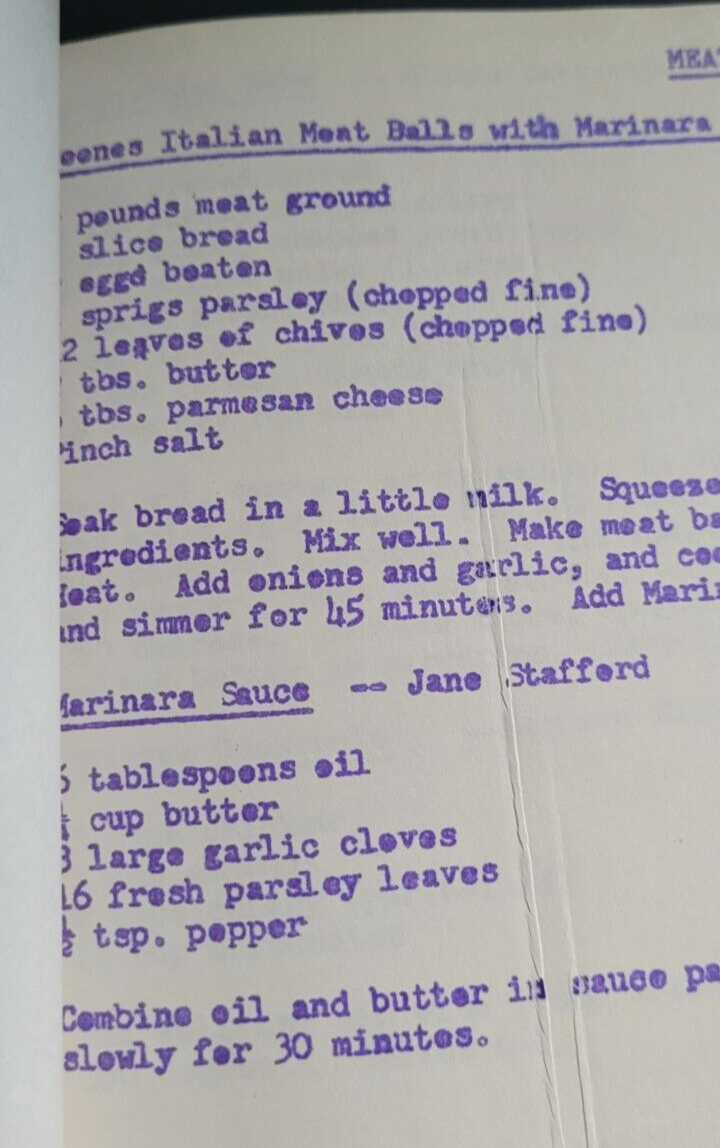 MEAT
eenes Italian Meat Balls with Marinara
pounds meat ground
slice bread
eggd beaten
sprigs parsley (chopped fine)
2 leaves of chives (chopped fine)
tbs. butter
tbs. parmesan cheese
Pinch salt
Soak bread in a little milk. Squeeze
ingredients. Mix well. Make meat ba
Heat. Add onions and garlic, and coo
and simmer for 45 minutes. Add Mari
Marinara Sauce -- Jane Stafford
5 tablespoons oil
¼ cup butter
3 large garlic cloves
16 fresh parsley leaves
½ tsp. pepper
Combine oil and butter in sauce pa
slowly for 30 minutes.